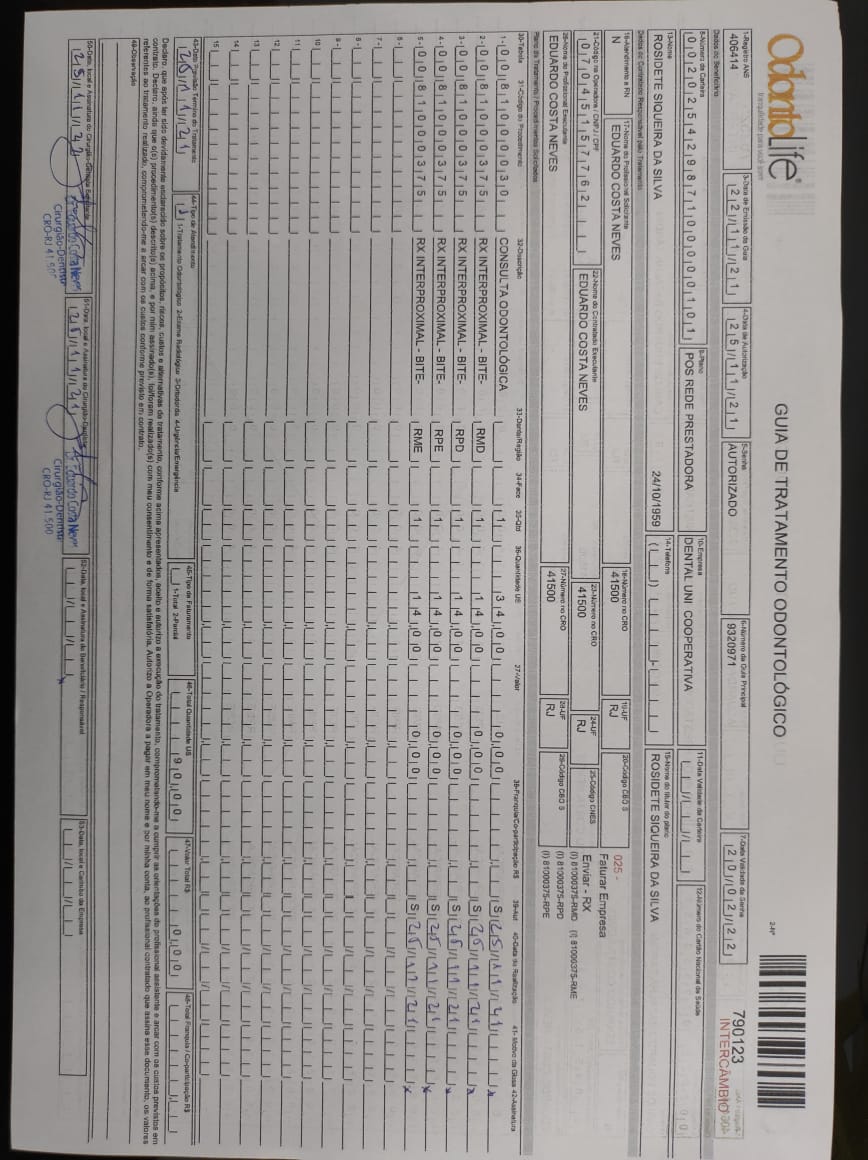 OdontoLife®
tranquilidade para você sorrir
GUIA DE TRATAMENTO ODONTOLÓGICO
2-Nº
790123
INTERCÂMBIO
1-Registro ANS
406414
3-Data de Emissão da Guia
22/11/21
4-Data de Autorização
25/11/21
5-Senha
AUTORIZADO
6-Número da Guia Principal
9320971
7-Data Validade da Senha
20/02/22
Dados do Beneficiário
8-Número da Carteira
00202542987100000101
9-Plano
POS REDE PRESTADORA
10-Empresa
DENTAL UNI COOPERATIVA
11-Data Validade da Carteira
12-Número do Cartão Nacional de Saúde
13-Nome
ROSIDETE SIQUEIRA DA SILVA 24/10/1959
14-Telefone
15-Nome do titular do plano
ROSIDETE SIQUEIRA DA SILVA
Dados do Contratado Responsável pelo Tratamento
16-Atendimento a RN
N
17-Nome do Profissional Solicitante
EDUARDO COSTA NEVES
18-Número no CRO
41500
19-UF
RJ
20-Código CBO S
025 -
Faturar Empresa
Enviar - RX
(I) 81000375-RMD (I) 81000375-RME
(I) 81000375-RPD
(I) 81000375-RPE
21-Código na Operadora / CNPJ / CPF
07045157762
22-Nome do Contratado Executante
EDUARDO COSTA NEVES
23-Número no CRO
41500
24-UF
RJ
25-Código CNES
26-Nome do Profissional Executante
EDUARDO COSTA NEVES
27-Número no CRO
41500
28-UF
RJ
29-Código CBO S
Plano de Tratamento / Procedimentos Solicitados
30-Tabela 31-Código do Procedimento 32-Descrição 33-Dente/Região 34-Face 35-Qtd 36-Quantidade US 37-Valor 38-Franquia/Co-participação R$ 39-Aut 40-Data de Realização 41- Motivo da Glosa 42-Assinatura
1- 0081000030 CONSULTA ODONTOLÓGICA 1 34,00 0,00 S 25/11/21 x
2- 0081000375 RX INTERPROXIMAL - BITE- RMD 1 14,00 0,00 S 25/11/21 x
3- 0081000375 RX INTERPROXIMAL - BITE- RPD 1 14,00 0,00 S 25/11/21 x
4- 0081000375 RX INTERPROXIMAL - BITE- RPE 1 14,00 0,00 S 25/11/21 x
5- 0081000375 RX INTERPROXIMAL - BITE- RME 1 14,00 0,00 S 25/11/21 x
6-
7-
8-
9-
10
11
12
13
14
15
43-Data Previsão Término do Tratamento
25/11/21
44-Tipo de Atendimento
1-Tratamento Odontológico 2-Exame Radiológico 3-Ortodontia 4-Urgência/Emergência
45-Tipo de Faturamento
1-Total 2-Parcial
46-Total Quantidade US
90,00
47-Valor Total R$
0,00
48-Total Franquia / Co-participação R$
Declaro, que após ter sido devidamente esclarecido sobre os propósitos, riscos, custos e alternativas de tratamento, conforme acima apresentados, aceito e autorizo a execução do tratamento, comprometendo-me a cumprir as orientações do profissional assistente e arcar com os custos previstos em
contrato. Declaro, ainda que o(s) procedimento(s) descrito(s) acima, e por mim assinado(s), foi/foram realizado(s) com meu consentimento e de forma satisfatória. Autorizo a Operadora a pagar em meu nome e por minha conta, ao profissional contratado que assina esse documento, os valores
referentes ao tratamento realizado, comprometendo-me a arcar com os custos conforme previsto em contrato.
49-Observação
50-Data, local e Assinatura do Cirurgião-Dentista Solicitante
Dr. Eduardo Costa Neves
Cirurgião-Dentista
CRO-RJ 41.500
51-Data, local e Assinatura do Cirurgião-Dentista
25/11/21
Dr. Eduardo Costa Neves
Cirurgião-Dentista
CRO-RJ 41.500
52-Data, local e Assinatura do Beneficiário / Responsável
x
53-Data, local e Carimbo da Empresa